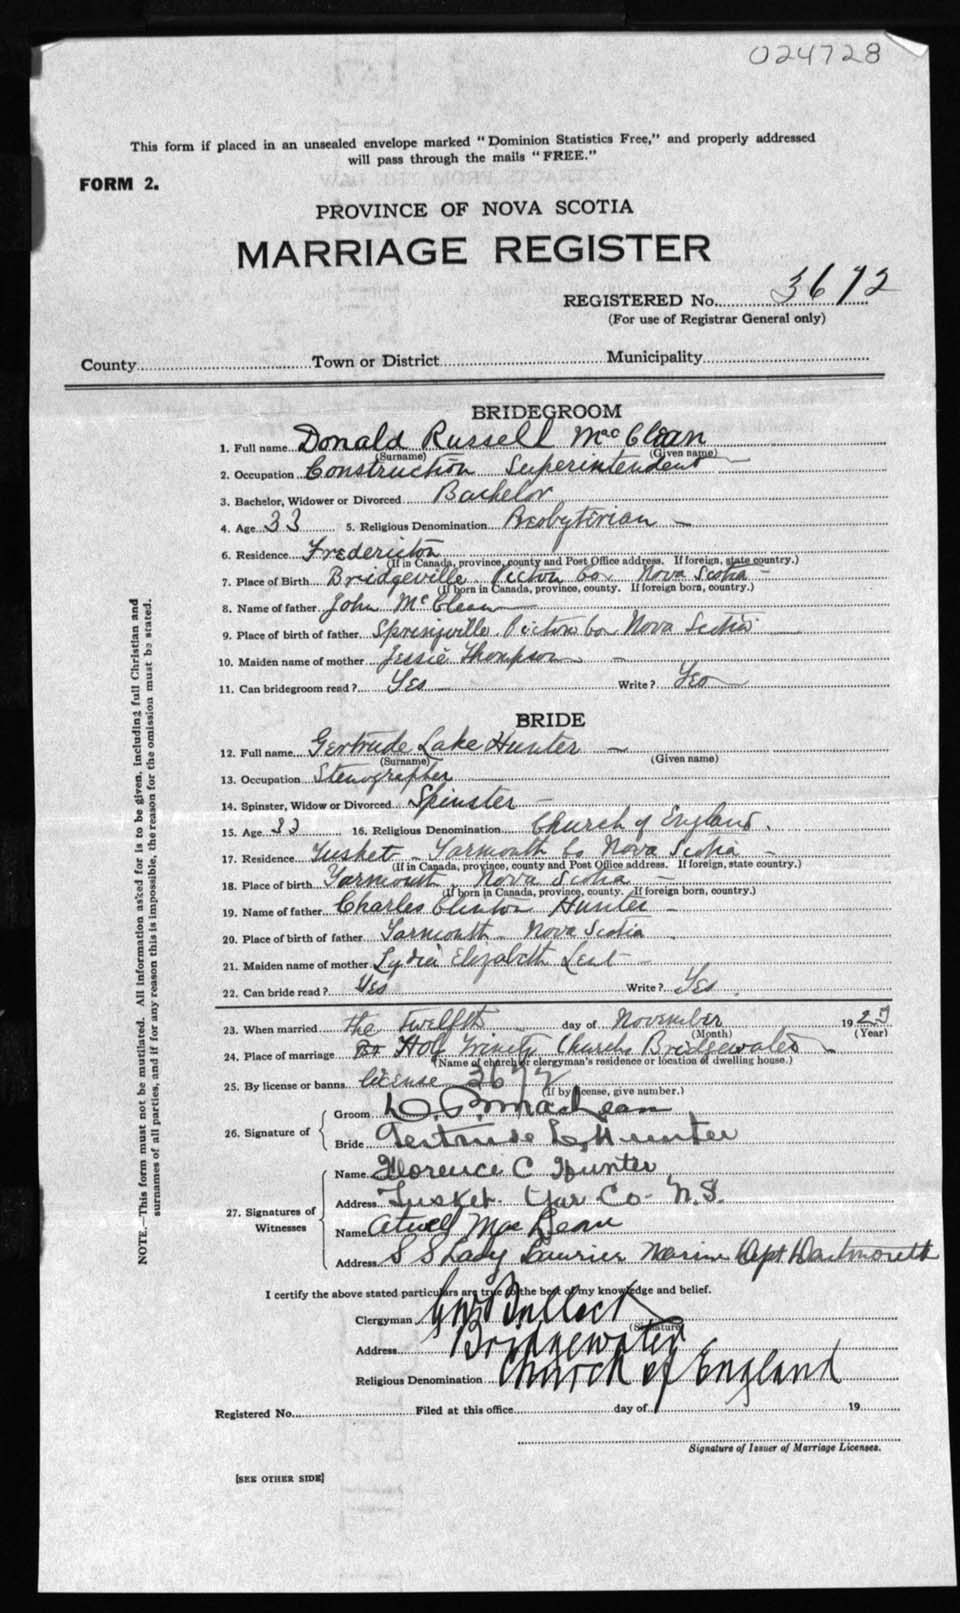 024728
This form if placed in an unsealed envelope marked "Dominion Statistics Free," and properly addressed
will pass through the mails "FREE."
FORM 2.
PROVINCE OF NOVA SCOTIA
MARRIAGE REGISTER
REGISTERED No. 3672
(For use of Registrar General only)
County Town or District Municipality
BRIDEGROOM
1. Full name Donald Russell MacClean
(Surname) (Given name)
2. Occupation Construction Superintendent
3. Bachelor, Widower or Divorced Bachelor
4. Age 33 5. Religious Denomination Presbyterian
6. Residence Fredericton
(If in Canada, province, county and Post Office address. If foreign, state country.)
7. Place of Birth Bridgeville Pictou Co Nova Scotia
(If born in Canada, province, county. If foreign born, country.)
8. Name of father John McClean
9. Place of birth of father Springville Pictou Co Nova Scotia
10. Maiden name of mother Jessie Thompson
11. Can bridegroom read? Yes Write? Yes
BRIDE
12. Full name Gertrude Lake Hunter
(Surname) (Given name)
13. Occupation Stenographer
14. Spinster, Widow or Divorced Spinster
15. Age 33 16. Religious Denomination Church of England.
17. Residence Tusket - Yarmouth Co Nova Scotia
(If in Canada, province, county and Post Office address. If foreign, state country.)
18. Place of birth Yarmouth, Nova Scotia
(If born in Canada, province, county. If foreign born, country.)
19. Name of father Charles Clinton Hunter
20. Place of birth of father Yarmouth - Nova Scotia
21. Maiden name of mother Lydia Elizabeth Lent
22. Can bride read? Yes Write? Yes.
23. When married the Twelfth day of November 19
(Month) (Year)
24. Place of marriage Holy Trinity Church Bridgewater
(Name of church or clergyman's residence or location of dwelling house.)
25. By license or banns license 3672
(If by license, give number.)
26. Signature of
Groom MacLean
Bride Gertrude L. Hunter
27. Signatures of Witnesses
Name Florence C Hunter
Address Tusket. Yar Co- N.S.
Name Atwell MacLean
Address S S Lady Laurier Marine Dept Dartmouth
I certify the above stated particulars are true to the best of my knowledge and belief.
Clergyman Bullock
(Signature)
Address Bridgewater
Religious Denomination Church of England
Registered No. Filed at this office day of 19
Signature of Issuer of Marriage Licenses.
[SEE OTHER SIDE]
NOTE.—This form must not be mutilated. All information asked for is to be given, including full Christian and
surnames of all parties, and if for any reason this is impossible, the reason for the omission must be stated.